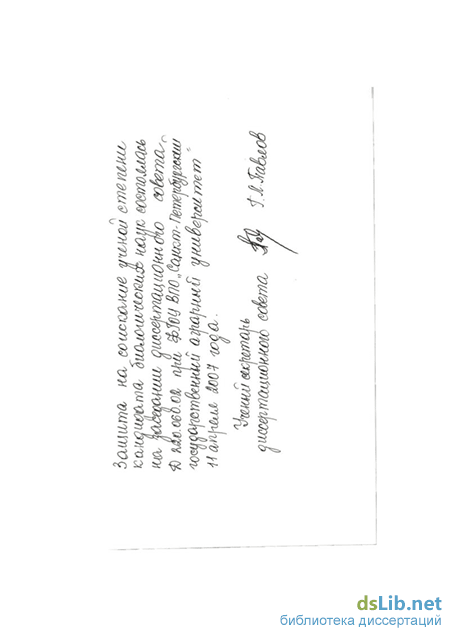 Защита на соискание ученой степени
кандидата биологических наук состоялась
на заседании диссертационного совета
Д 220.060.02 при ФГОУ ВПО „Санкт-Петербургский
государственный аграрный университет"
11 апреля 2007 года.
Ученый секретарь
диссертационного совета Г.А. Павлов
dsLib.net
библиотека диссертаций